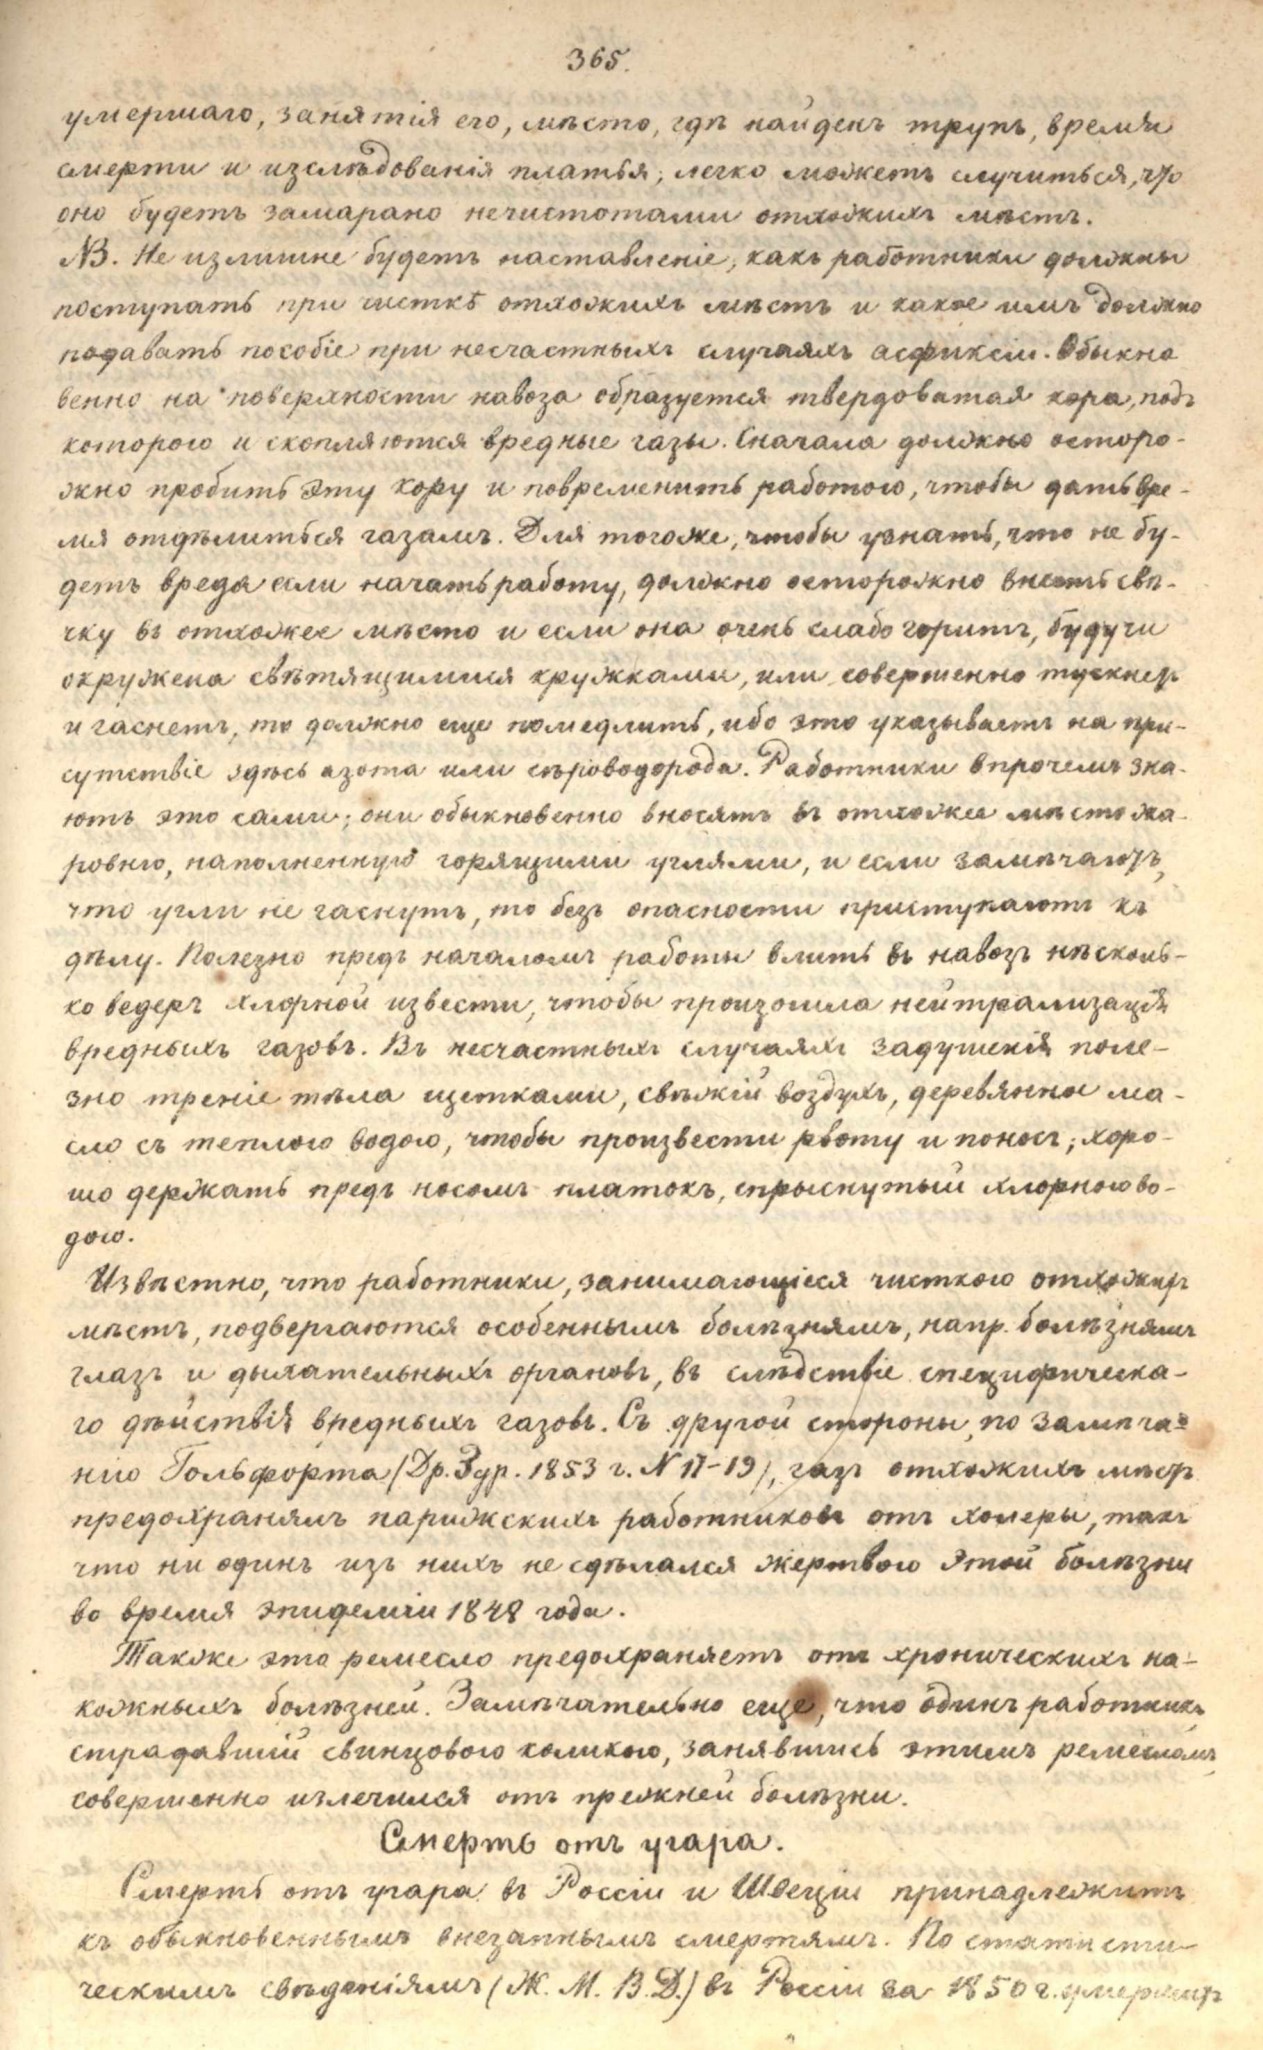 365.
умершаго, занятія его, мѣсто, гдѣ найденъ трупъ, время
смерти и изслѣдованія платья; легко можетъ случиться, что
оно будетъ замарано нечистотами отхожихъ мѣстъ.
NB. Не излишне будетъ наставленіе, какъ работники должны
поступать при чисткѣ отхожихъ мѣстъ и какое имъ должно
подавать пособіе при несчастныхъ случаяхъ асфиксіи. Обыкно
венно на поверхности навоза образуется твердоватая кора, подъ
которою и скопляются вредные газы. Сначала должно осторо-
жно пробить эту кору и повременить работою, чтобы дать вре-
мя отдѣлиться газамъ. Для тогоже, чтобы узнать, что не бу-
детъ вреда если начать работу, должно осторожно внесть свѣ-
чку въ отхожее мѣсто и если она очень слабо горитъ, будучи
окружена свѣтящимися кружками, или совершенно тускнетъ
и гаснетъ, то должно еще помедлить, ибо это указываетъ на при-
сутствіе здѣсь азота или сѣроводорода. Работники впрочемъ зна-
ютъ это сами; они обыкновенно вносятъ въ отхожее мѣсто жа-
ровню, наполненную горящими углями, и если замѣчаютъ,
что угли не гаснутъ, то безъ опасности приступаютъ къ
дѣлу. Полезно предъ началомъ работы влить въ навозъ нѣсколь-
ко ведеръ хлорной извести, чтобы произошла нейтрализація
вредныхъ газовъ. Въ несчастныхъ случаяхъ задушенія поле-
зно треніе тѣла щетками, свѣжій воздухъ, деревянное ма-
сло съ теплою водою, чтобы произвести рвоту и поносъ; хоро-
шо держать предъ носомъ платокъ, спрыснутый хлорною во-
дою.
Извѣстно, что работники, занимающіеся чисткою отхожихъ
мѣстъ, подвергаются особеннымъ болѣзнямъ, напр. болѣзнямъ
глазъ и дыхательныхъ органовъ, въ слѣдствіе специфическа-
го дѣйствія вредныхъ газовъ. Съ другой стороны, по замѣча-
нію Гольфорта (Др. Здр. 1853 г. N 17-19), газъ отхожихъ мѣстъ
предохранялъ парижскихъ работниковъ отъ холеры, такъ
что ни одинъ изъ нихъ не сдѣлался жертвою этой болѣзни
во время эпидеміи 1848 года.
Также это ремесло предохраняетъ отъ хроническихъ на-
кожныхъ болѣзней. Замѣчательно еще, что одинъ работникъ,
страдавшій свинцовою коликою, занявшись этимъ ремесломъ,
совершенно излечился отъ прежней болѣзни.
Смерть отъ угара.
Смерть отъ угара въ Россіи и Швеціи принадлежитъ
къ обыкновеннымъ внезапнымъ смертямъ. По статисти-
ческимъ свѣденіямъ (Ж. М. В. Д.) въ Россіи за 1850 г. умершихъ